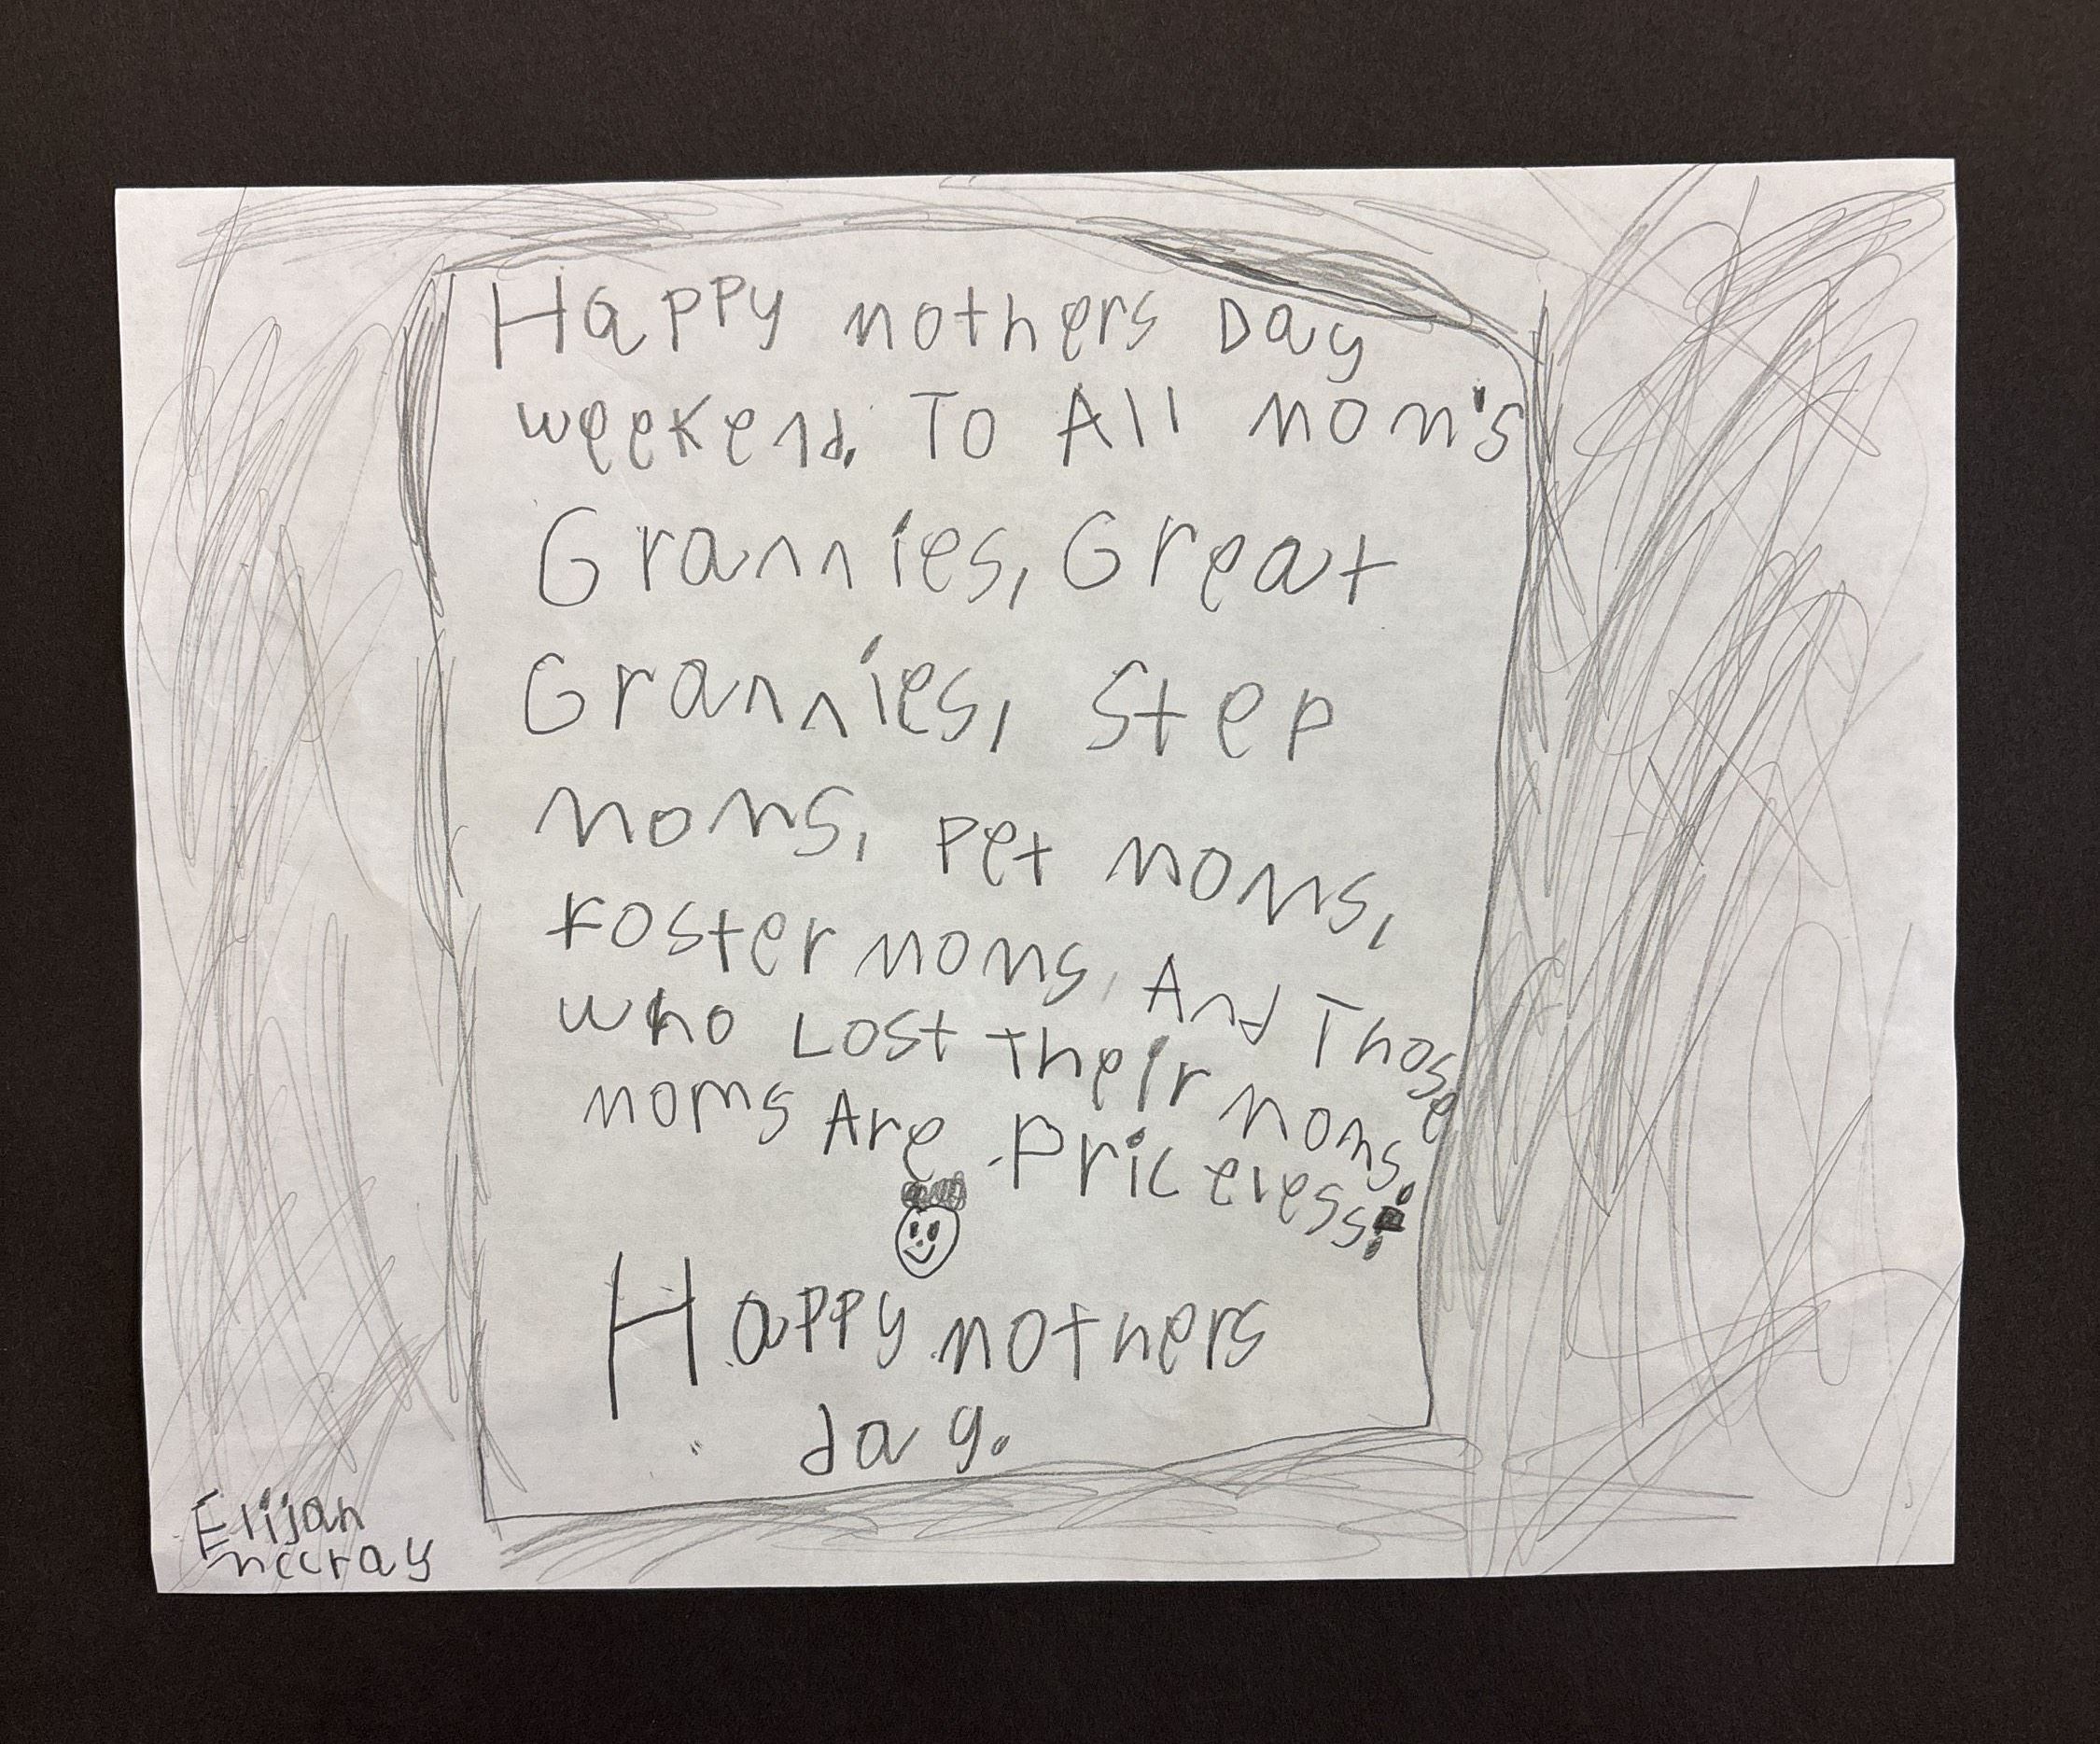 Happy mothers Day
weekend. To All mom's
Grannies, Great
Grannies, Step
moms, Pet moms,
Foster moms, And Those
who Lost their moms.
moms Are Priceless!
Happy mothers
day.
Elijah
mccray